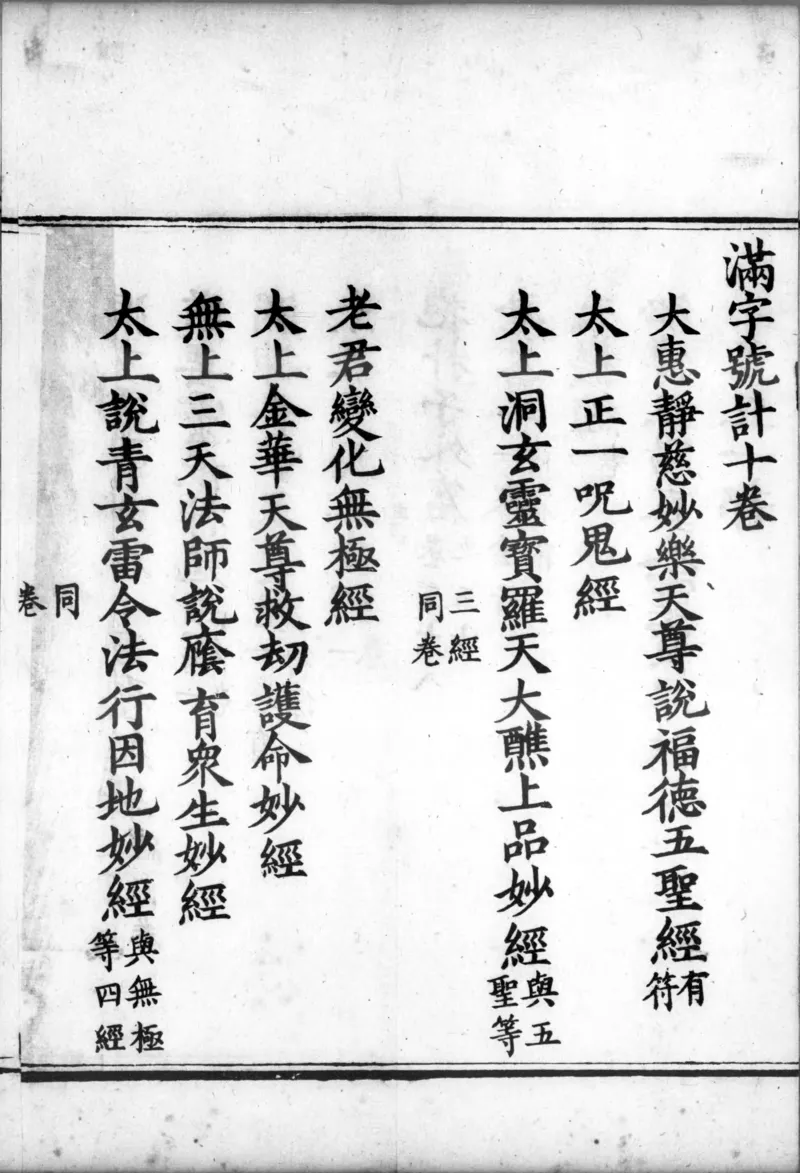 滿字號計十卷
大惠靜慈妙樂天尊説福德五聖經有符
太上正一呪鬼經
太上洞玄靈寶羅天大醮上品妙經與五聖等
三經同卷
老君變化無極經
太上金華天尊救劫護命妙經
無上三天法師説廕育衆生妙經
太上說青玄雷令法行因地妙經與無極等四經
同卷